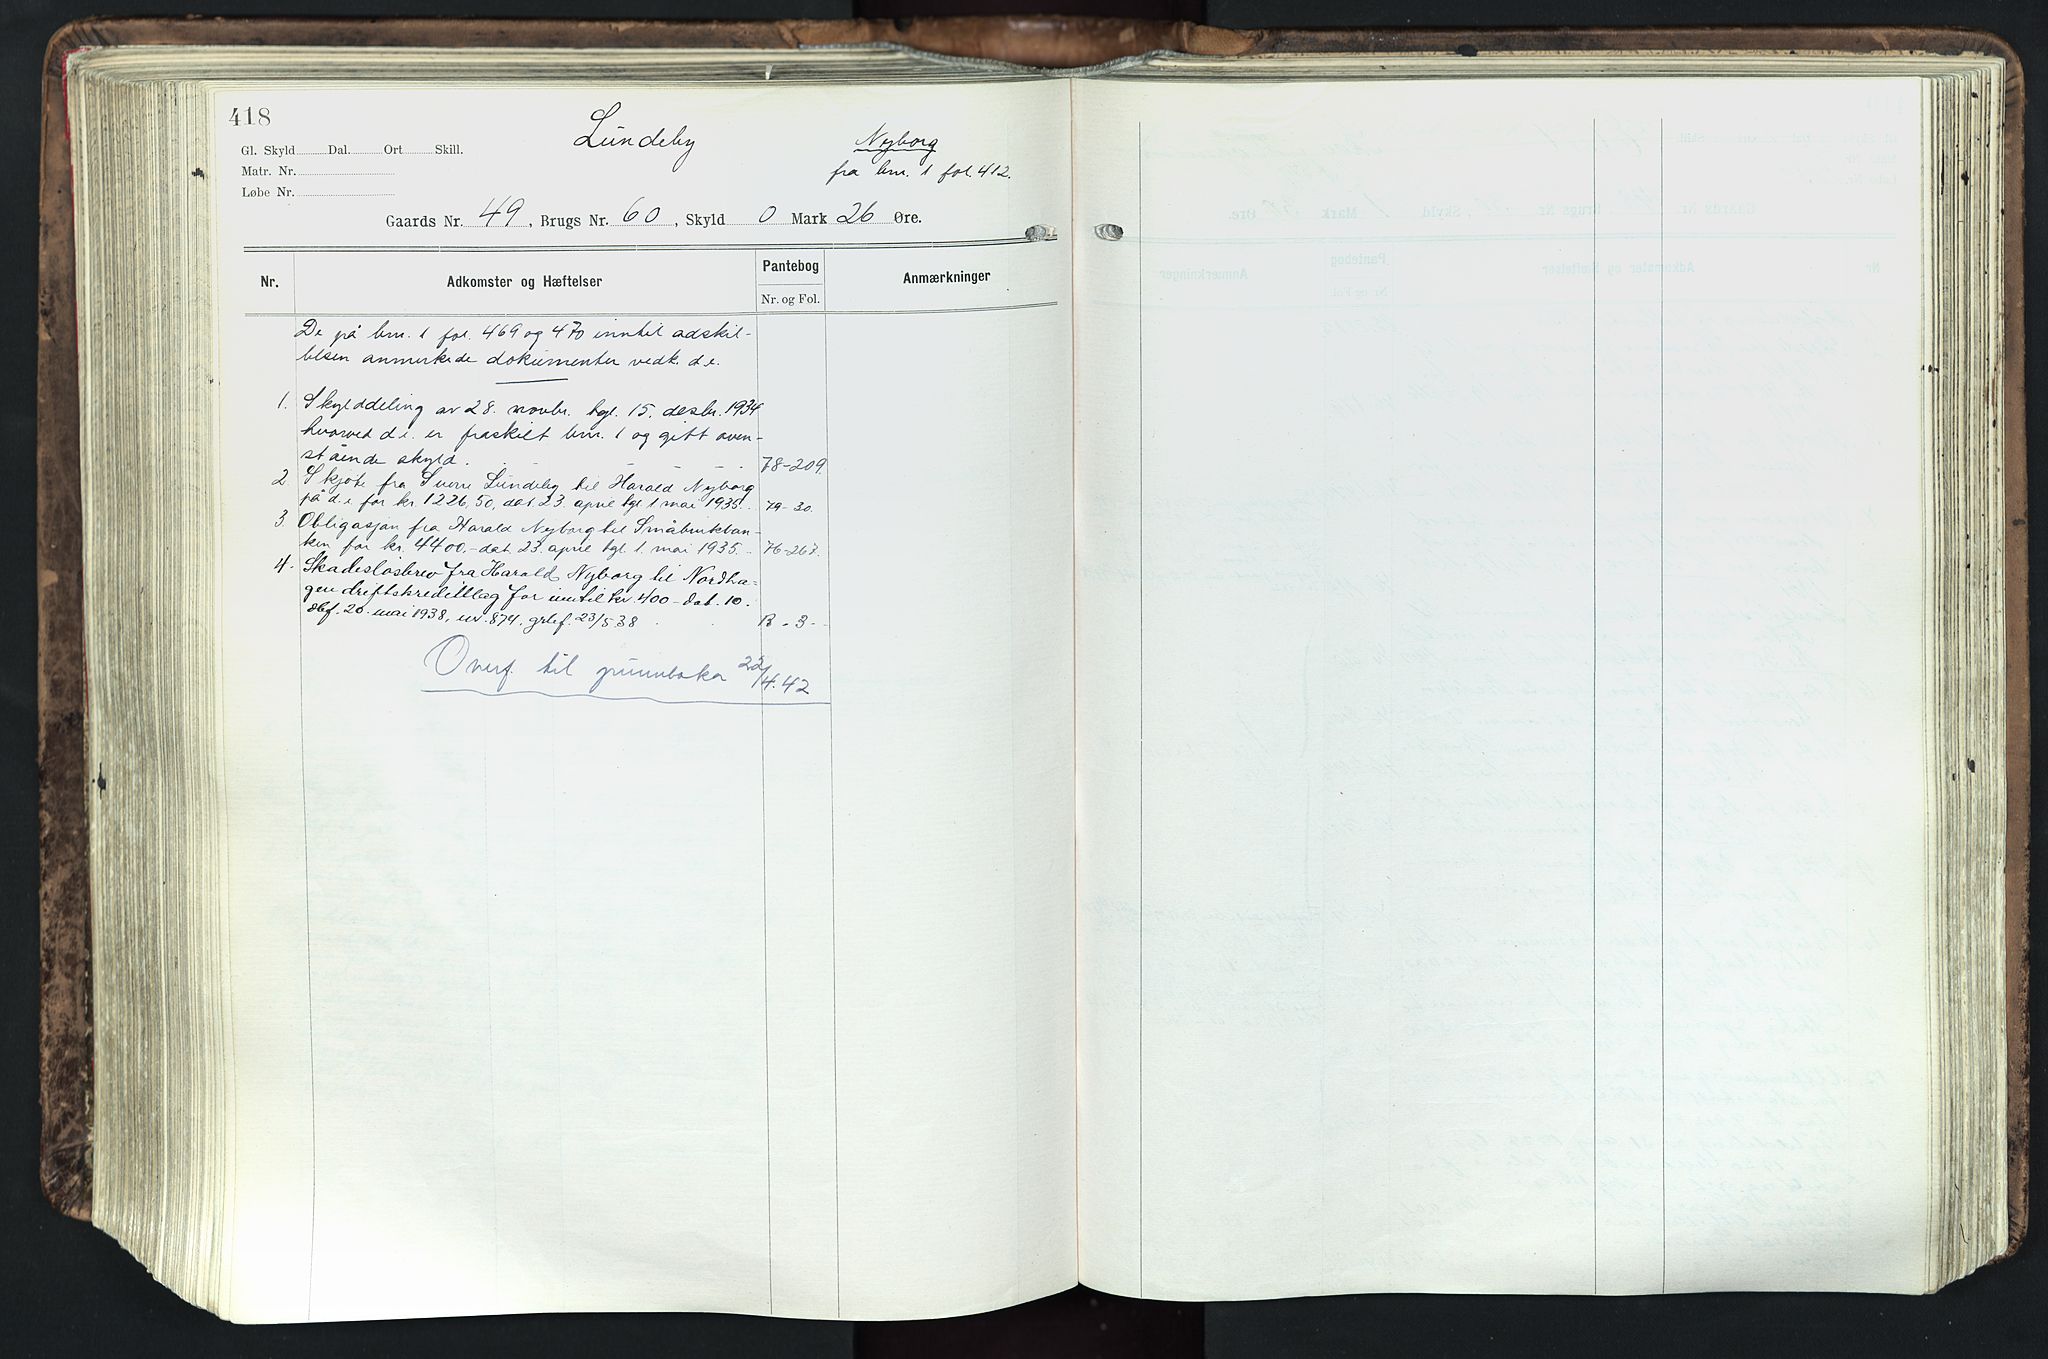 418
Lundeby
Nyborg
fra bnr. 1 fol. 412.
Gl. Skyld Dal. Ort Skill.
Matr. Nr.
Løbe Nr.
Gaards Nr. 49, Brugs Nr. 60, Skyld 0 Mark 26 Øre.
Nr. Adkomster og Hæftelser Pantebog Anmærkninger
Nr. og Fol.
De på bnr. 1 fol. 469 og 470 inntil adskil-
lelsen anmerkede dokumenter vedk. d.e.
1. Skylddeling av 28. novbr. tgl. 15. desbr. 1934
hvorved d.e. er fraskilt bnr. 1 og gitt oven-
stående skyld. 78-209.
2. Skjøte fra Sverre Lundeby til Harald Nyborg
på d.e for kr. 1226,50, dat. 23. april tgl. 1 mai 1935. 79-30.
3. Obligasjon fra Harald Nyborg til Småbrukban-
ken for kr. 4400.- dat. 23. april tgl. 1. mai 1935. 76-267.
4. Skadesløsbrev fra Harald Nyborg til Nordha-
gen driftskredittlag for inntil kr. 400- dat. 10.
dbf. 20. mai 1938, nr. 874, grbf. 23/5.38 B - 3-
Overf. til grunnboka 22/4.42